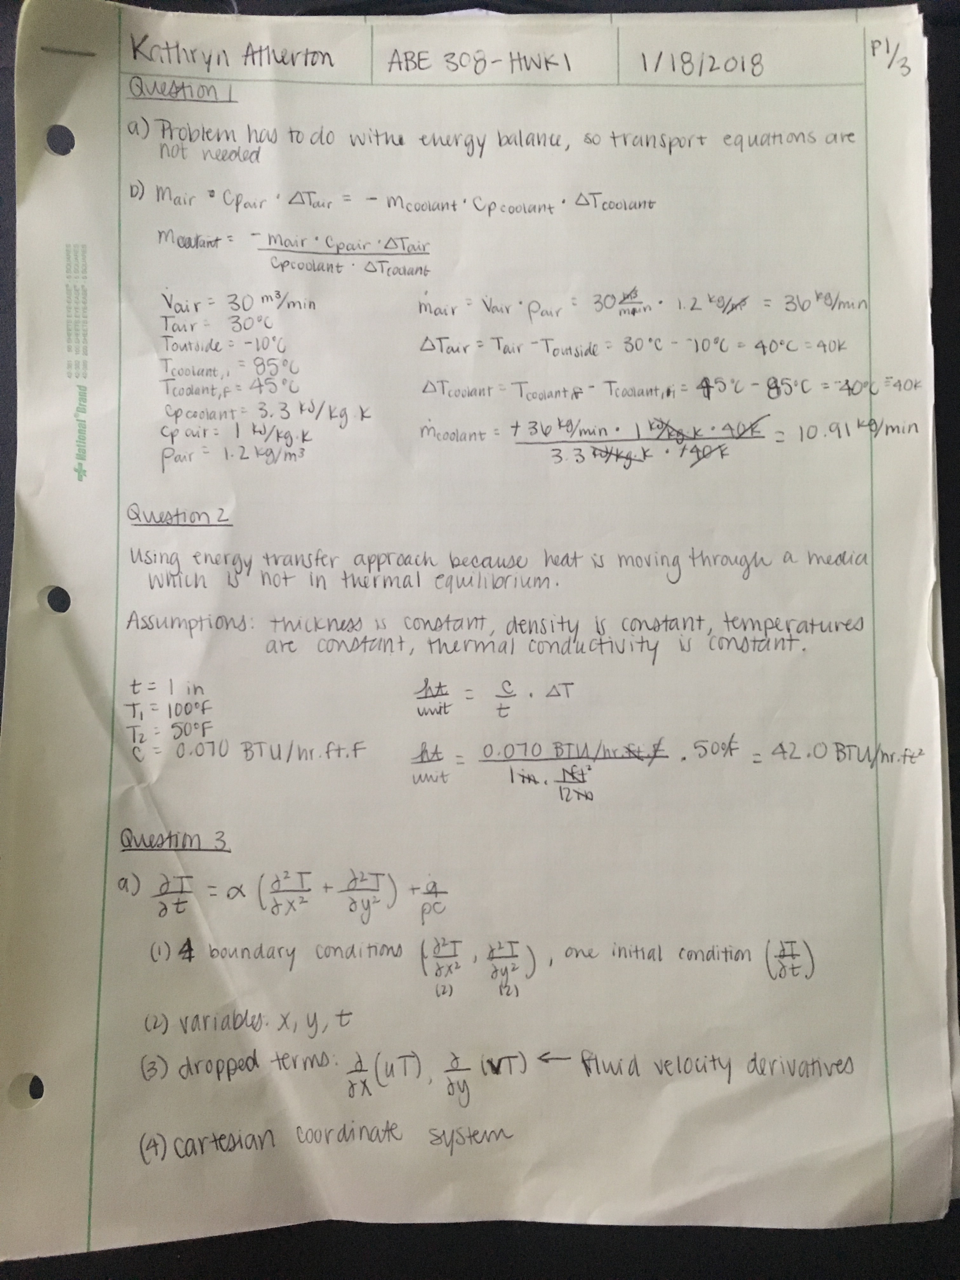 Kathryn Atherton ABE 308-HWK1 1/18/2018 P1/3
Question 1
a) Problem has to do withe energy balance, so transport equations are
not needed
b) mair · Cpair · ΔTair = - mcoolant · Cpcoolant · ΔTcoolant
mcoolant = - mair · Cpair · ΔTair / Cpcoolant · ΔTcoolant
V̇air = 30 m³/min
Tair = 30°C
Toutside = -10°C
Tcoolant,i = 85°C
Tcoolant,f = 45°C
Cpcoolant = 3.3 kJ/kg·K
Cpair = 1 kJ/kg·K
ρair = 1.2 kg/m³
ṁair = V̇air · ρair = 30 m³/min · 1.2 kg/m³ = 36 kg/min
ΔTair = Tair - Toutside = 30°C - -10°C = 40°C = 40K
ΔTcoolant = Tcoolant,f - Tcoolant,i = 45°C - 85°C = -40°C = -40K
ṁcoolant = +36 kg/min · 1 kJ/kg·K · 40K / 3.3 kJ/kg·K · +40K = 10.91 kg/min
National® Brand
Question 2
Using energy transfer approach because heat is moving through a media
which is not in thermal equilibrium.
Assumptions: thickness is constant, density is constant, temperatures
are constant, thermal conductivity is constant.
t = 1 in
T₁ = 100°F
T₂ = 50°F
C = 0.070 BTU/hr.ft.F
ht/unit = C/t · ΔT
ht/unit = 0.070 BTU/hr.ft.F / 1 in. 1ft²/12 in · 50°F = 42.0 BTU/hr.ft²
Question 3
a) ∂T/∂t = α (∂²T/∂x² + ∂²T/∂y²) + q/ρc
(1) 4 boundary conditions (∂²T/∂x², ∂²T/∂y²), one initial condition (∂T/∂t)
(2) (2)
(2) variables: x, y, t
(3) dropped terms: ∂/∂x (uT), ∂/∂y (vT) ← fluid velocity derivatives
(4) cartesian coordinate system